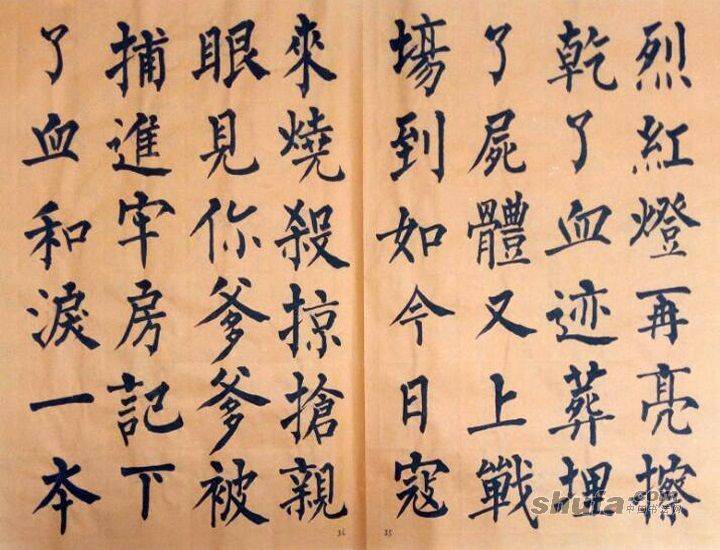 烈紅燈再亮擦
乾了血迹葬埋
了屍體又上戰
場到如今日寇
來燒殺掠搶親
眼見你爹爹被
捕進牢房記下
了血和淚一本
35
36
shufa.com
中国书法网